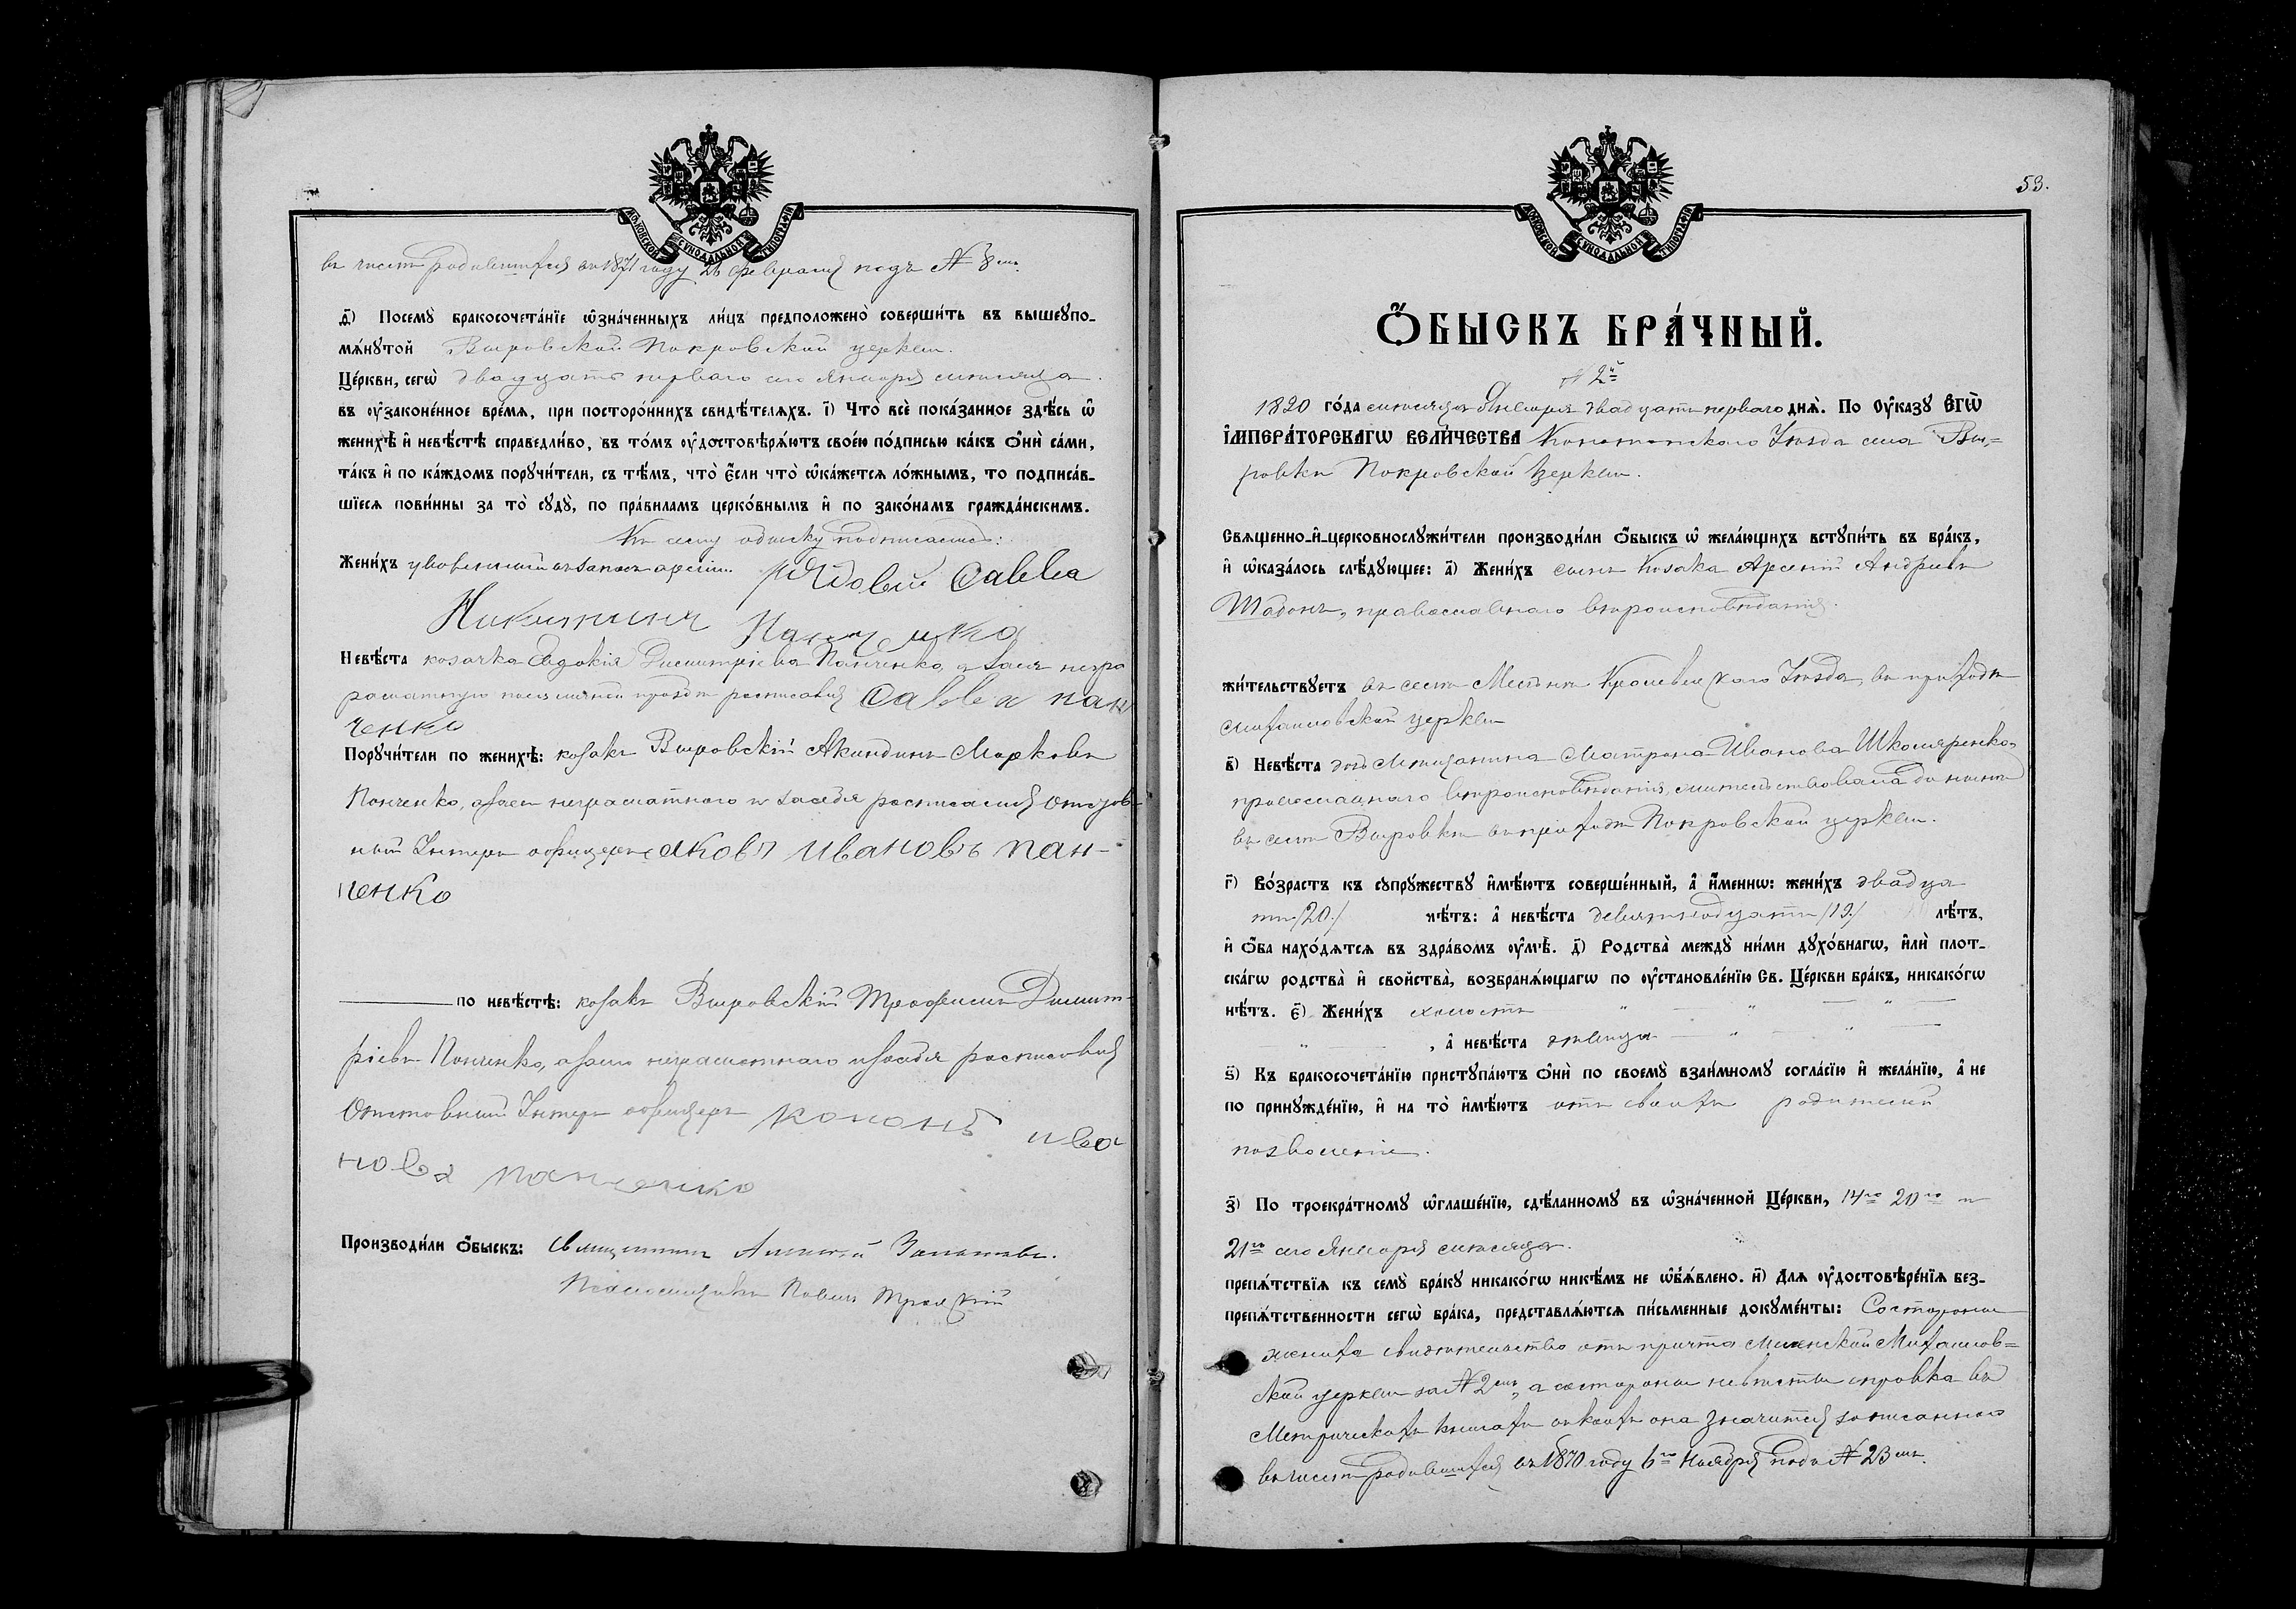 МОСКОВСКОЙ СУНОДАЛЬНОЙ ТИПОГРАФІИ
въ числѣ родившихся въ 1871 году 26 февраля подъ № 8мъ.
д҃) Посемꙋ̀ бракосочета́нїе ѡ҆зна́ченныхъ ли́цъ предположено̀ соверши́ть въ вышеꙋпо-
мѧ́нꙋтой Выровской Покровской церкви.
Це́ркви, сегѡ̀ двадцать перваго сего Января мѣсяца.
въ ᲂу҆законе́нное вре́мѧ, при посторо́ннихъ свидѣ́телѧхъ. і҃) Что̀ всѐ пока́занное здѣ́сь ѡ҆
женихѣ̀ и҆ невѣ́стѣ справедли́во, въ то́мъ ᲂу҆достовѣрѧ́ютъ свое́ю по́дписью ка́къ ѻ҆нѝ са́ми,
та́къ и҆ по ка́ждомъ порꙋчи́тели, съ тѣ́мъ, что̀ є҆́сли что̀ ѡ҆ка́жется ло́жнымъ, то подписа́в-
шїесѧ пови́нны за то̀ сꙋдꙋ̀, по пра́виламъ церко́внымъ и҆ по зако́намъ гражда́нскимъ.
Къ сему обыску подписались:
Жени́хъ уволенный въ запасъ арміи рядовой Савва
Никитинъ Панченко
Невѣ́ста козачка Евдокія Димитріева Панченко, а вмѣсто неграмотную по ея личной просьбѣ росписался Савва пан
ченко
Порꙋчи́тели по женихѣ̀: козакъ Выровскій Акиндинъ Марковъ
Панченко, а за его неграмотного и за себя росписался отстав-
ный Унтеръ офицеръ яковъ ивановъ пан-
ченко
по невѣ́стѣ: козакъ Выровскій Трофимъ Димит-
ріевъ Панченко, а за его неграмотного и за себя росписовался
Отставный Унтеръ офицеръ кононъ ива
новъ панченко
Производи́ли ѻ҆́быскъ: Священникъ Алексѣй
Псаломщикъ Павелъ Троцкій
МОСКОВСКОЙ СУНОДАЛЬНОЙ ТИПОГРАФІИ
53.
Ѻ҆́БЫСКЪ БРА́ЧНЫЙ.
№ 2й
1890 го́да мѣсяца Января двадцать перваго днѧ̀. По Ꙋ҆ка́зꙋ Є҆ГѠ̀
І҆МПЕРА́ТОРСКАГѠ ВЕЛИ́ЧЕСТВА Конотопскаго Уѣзда села Вы=
ровки Покровской Церкви.
Свѧщенно-и҆-церковнослꙋжи́тели производи́ли ѻ҆́быскъ ѡ҆ жела́ющихъ встꙋпи́ть въ бра́къ,
и҆ ѡ҆каза́лось слѣ́дꙋющее: а҃) Жени́хъ сынъ Козака Арсеній Андреевъ
Шадонъ, православнаго вѣроисповѣданія.
жи́тельствꙋетъ въ селѣ Кролевецкаго Уѣзда, въ приходѣ
Михаиловской церкви
в҃) Невѣ́ста дочь Мѣщанина Матрона Иванова Школяренкова
православнаго вѣроисповѣданія, жительствовала до нынѣ
въ селѣ Выровкѣ въ приходѣ Покровской церкви.
г҃) Во́зрастъ къ сꙋпрꙋ́жествꙋ и҆мѣ́ютъ соверше́нный, а҆ и҆́меннѡ: жени́хъ двадца
ти /20./ лѣ́тъ: а҆ невѣ́ста девятнадцати /19./ лѣ́тъ,
и҆ ѻ҆́ба нахо́дѧтсѧ въ здра́вомъ ᲂу҆мѣ̀. д҃) Родства̀ междꙋ̀ ни́ми дꙋхо́внагѡ, и҆лѝ плот-
ска́гѡ родства̀ и҆ сво́йства̀, возбранѧ́ющагѡ по ᲂу҆становле́нїю Св. Це́ркви бра́къ, никако́гѡ
нѣ́тъ. є҃) Жени́хъ холостъ
, а҆ невѣ́ста дѣвица
ѕ҃) Къ бракосочета́нїю пристꙋпа́ютъ ѻ҆нѝ по своемꙋ̀ взаи́мномꙋ согла́сїю и҆ жела́нїю, а҆ не
по принꙋжде́нїю, и҆ на то̀ и҆мѣ́ютъ отъ своихъ родителей
позволеніе.
з҃) По троекра́тномꙋ ѡ҆глаше́нїю, сдѣ́ланномꙋ въ ѡ҆зна́ченной Це́ркви, 14го 20го и
21го сего Января мѣсяца.
препѧ́тствїѧ къ семꙋ̀ бра́кꙋ никако́гѡ никѣ́мъ не ѡ҆б̾ѧ́влено. и҃) Длѧ ᲂу҆достовѣре́нїѧ без-
препѧ́тственности сегѡ̀ бра́ка, представлѧ́ютсѧ пи́сьменные докꙋме́нты: Со стороны
жениха свидѣтельство отъ причта Михаилов=
ской церкви за № 2мъ, а со стороны невѣсты справка въ
Метрическихъ книгахъ въ коихъ она значится записанною
въ числѣ родившихся въ 1870 году 6го Ноября подъ № 23мъ.